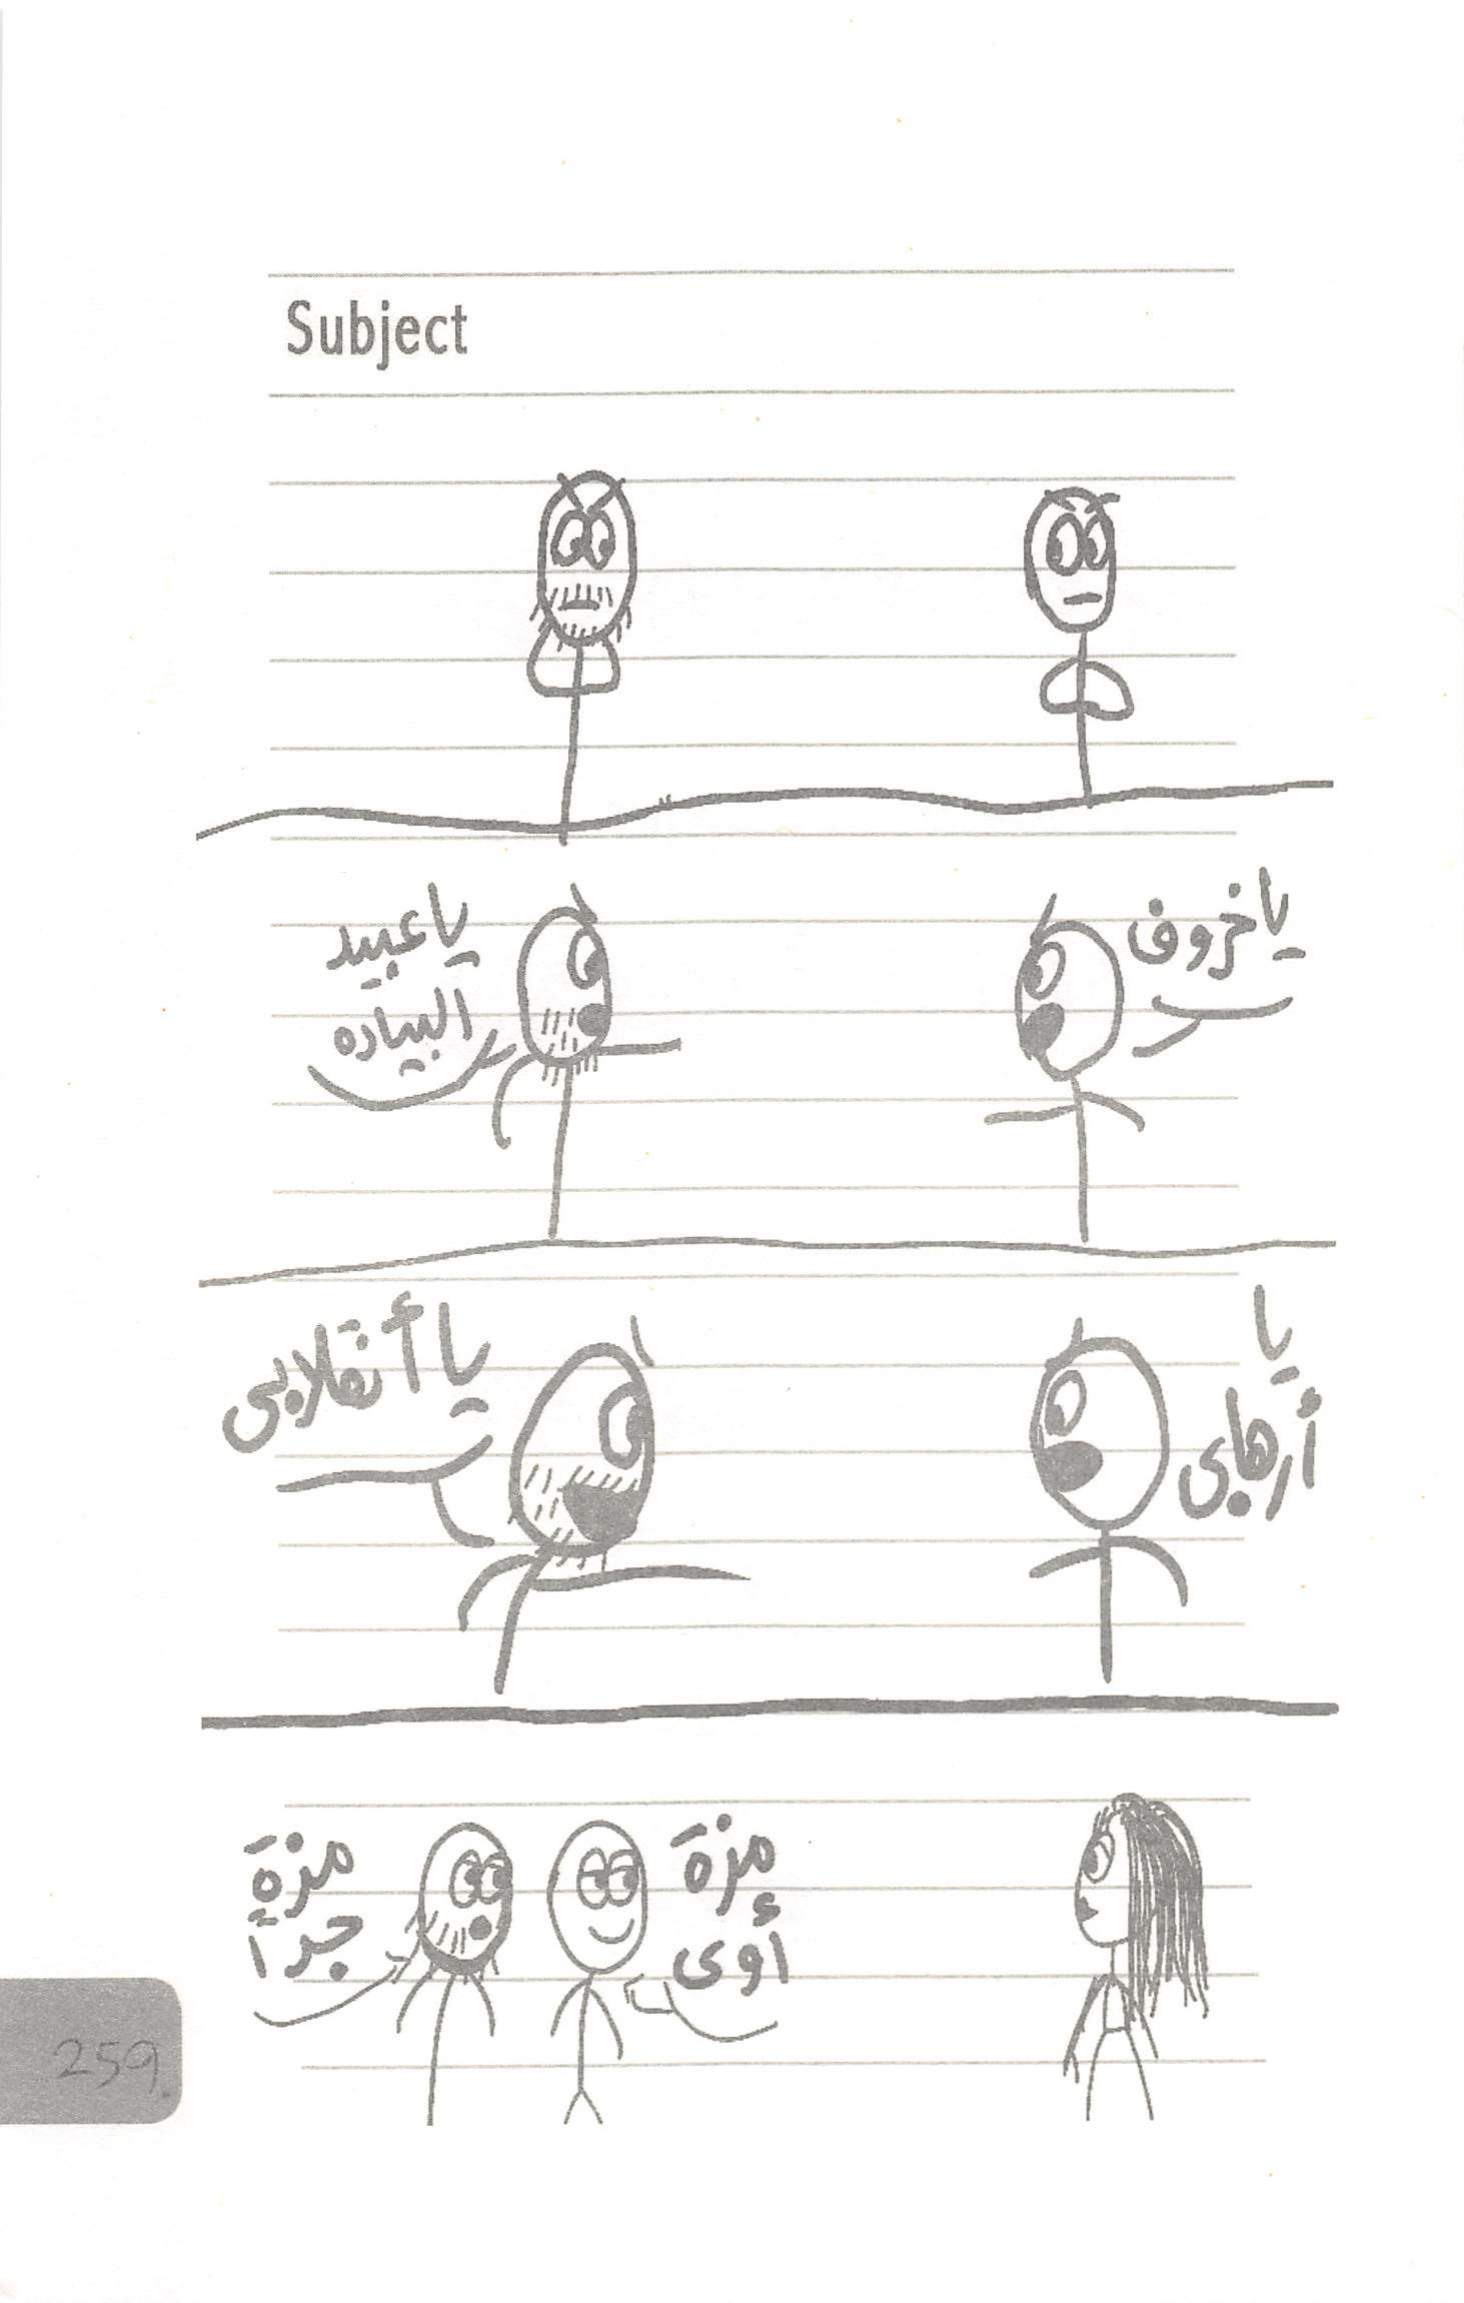 Subject
يا خروف
يا عبيد
البياده
يا
أرهابى
يا أنقلابى
مزة
أوى
مزة
جداً
259